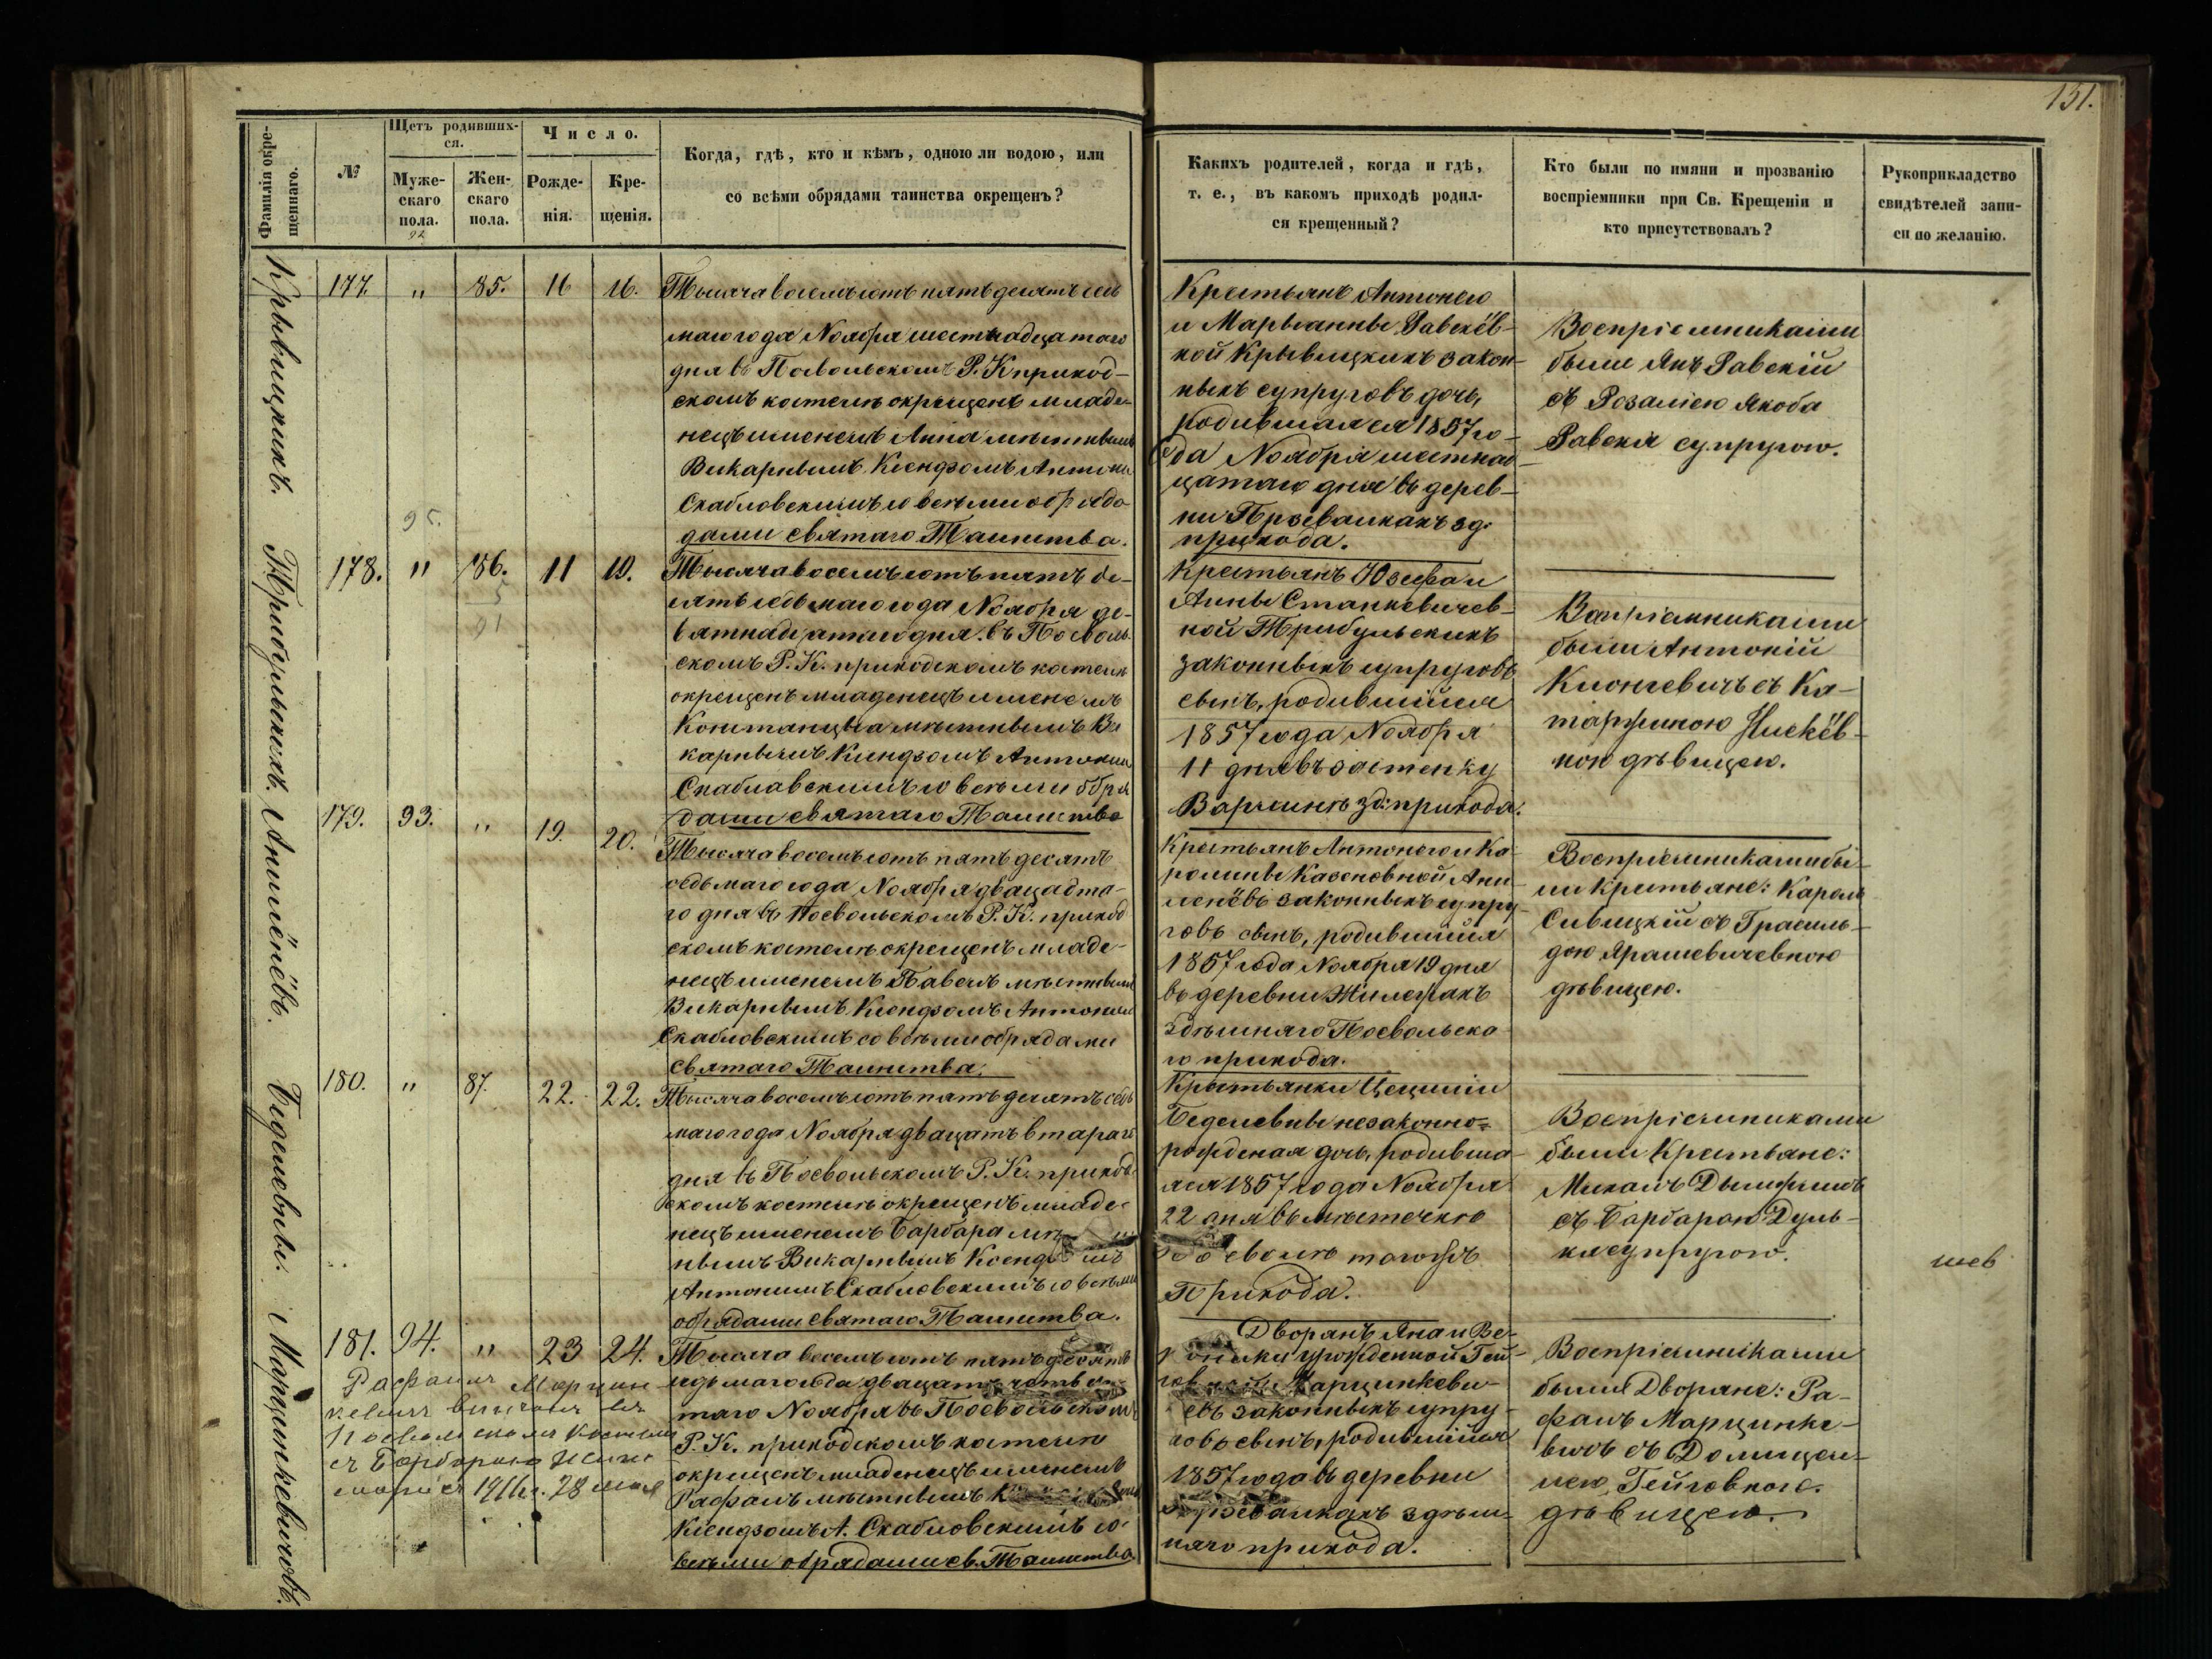 151.
Фамилія окре-
щеннаго.
№
Щетъ родивших-
ся.
Муже-
скаго
пола.
92
Жен-
скаго
пола.
Число.
Рожде-
нія.
Кре-
щенія.
Когда, гдѣ, кто и кѣмъ, одною ли водою, или
со всѣми обрядами таинства окрещенъ?
Какихъ родителей, когда и гдѣ,
т. е., въ какомъ приходѣ родил-
ся крещенный?
Кто были по имяни и прозванію
воспріемники при Св. Крещеніи и
кто присутствовалъ?
Рукоприкладство
свидѣтелей запи-
си по желанію.
Крывицкихъ.
177.
"
85.
16
16.
Тысяча восемьсотъ пятьдесятъ седь
маго года Ноября шестнадцатаго
дня въ Посвольскомъ Р. К. приход-
скомъ костелѣ окрещенъ младе-
нецъ именемъ Анна мѣстнымъ
Викарнымъ Ксендзомъ Антоніи
Скабловскимъ со всѣми обрядо-
дами святаго Таинства.
Крестьянъ Антонего
и Марьянны Равскёв-
ной Крывицкихъ закон-
ныхъ супруговъ дочь,
родившаяся 1857 го-
да Ноября шестнад-
цатаго дня въ дерев-
ни Прзевалкахъ зд:
прихода.
Воспріемниками
были Янъ Равскій
съ Розаліею Якоба
Равскія супругою.
Трибульскихъ.
95.
178.
"
186.
5
91
11
19.
Тысяча восемьсотъ пятъ де-
сятъ седьмаго года Ноября де-
вятнадцатаго дня въ Посволь
скомъ Р. К. приходскомъ костелѣ
окрещенъ младенецъ именемъ
Констанцыа мѣстнымъ Ви
карнымъ Ксендзомъ Антоніи
Скаблавскимъ со всѣми обря
дами святаго Таинства
Крестьянъ Юзефа и
Анны Станкевичев-
ной Трибульскихъ
законныхъ супруговъ
сынъ, родившійся
1857 года Ноября
11 дня въ застенку
зд: прихода.
Васпріемниками
были Антоній
съ Ка-
таржиною
ною дѣвицею.
Анилёнёвъ.
179.
93.
"
19.
20.
Тысяча восемьсотъ пятъ десятъ
седьмаго года Ноября двацадта-
го дня въ Посвольскомъ Р. К. приход
скомъ костелѣ окрещенъ младе-
нецъ именемъ Павелъ мѣстнымъ
Викарнымъ Ксендзомъ Антоніи
Скабловскимъ со всѣми обрядами
святаго Таинства.
Крестьянъ Антонего и Ка-
ролины Казоновной Ани-
ленёвъ законныхъ супру
говъ сынъ, родившійся
1857 года Ноября 19 дня
въ деревни
здѣшняго Посвольска
го прихода.
Воспріемниками бы-
ли крестьяне: Кароль
Сивицкій съ Грасиль-
дою Ярашевичевною
дѣвицею.
Беделевны.
180.
"
87.
22.
22.
Тысяча восемьсотъ пятъ десятъ седь
маго года Ноября двацатъ втараго
дня въ Посвольскомъ Р. К. приход
скомъ костелѣ окрещенъ младе-
нецъ именемъ Барбара
нымъ Викарнымъ Ксендзомъ
Антоніимъ Скабловскимъ со всѣми
обрядами святаго Таинства.
Крестьянки Цециліи
Беделевны незаконно=
рожденая дочь, родивша
яся 1857 года Ноября
22 дня въ мѣстечкѣ
Посволѣ тогожъ
Прихода.
Воспріемниками
были Крестьяне:
Михалъ
съ Барбарою Дуль-
кя супругою.
шев
Марцинкевичовъ.
181.
94.
"
23
24.
Рафаилъ Марцин-
кевичъ венчанъ въ
Посвольскомъ Костелѣ
съ Барбарою
1916 г. 28 мая
Тысяча восемьсотъ пятъ десятъ
седьмаго года двацатъ четвер-
таго Ноября въ Посвольскомъ
Р. К. приходскомъ костелѣ
окрещенъ младенецъ именемъ
Рафалъ мѣстнымъ
Ксендзомъ А. Скабловскимъ со
всѣми обрядами св. Таинства
Дворянъ Яна и Ве-
роники урожденной Гей-
Марцинкеви-
евъ законныхъ супру
говъ сынъ, родившійся
1857 года въ деревни
Прзевалкахъ здѣш-
няго прихода.
Воспріемниками
были Дворяне: Ра-
фалъ Марцинке-
вичъ съ Домицел-
лею, Гейговною.
дѣвицею.